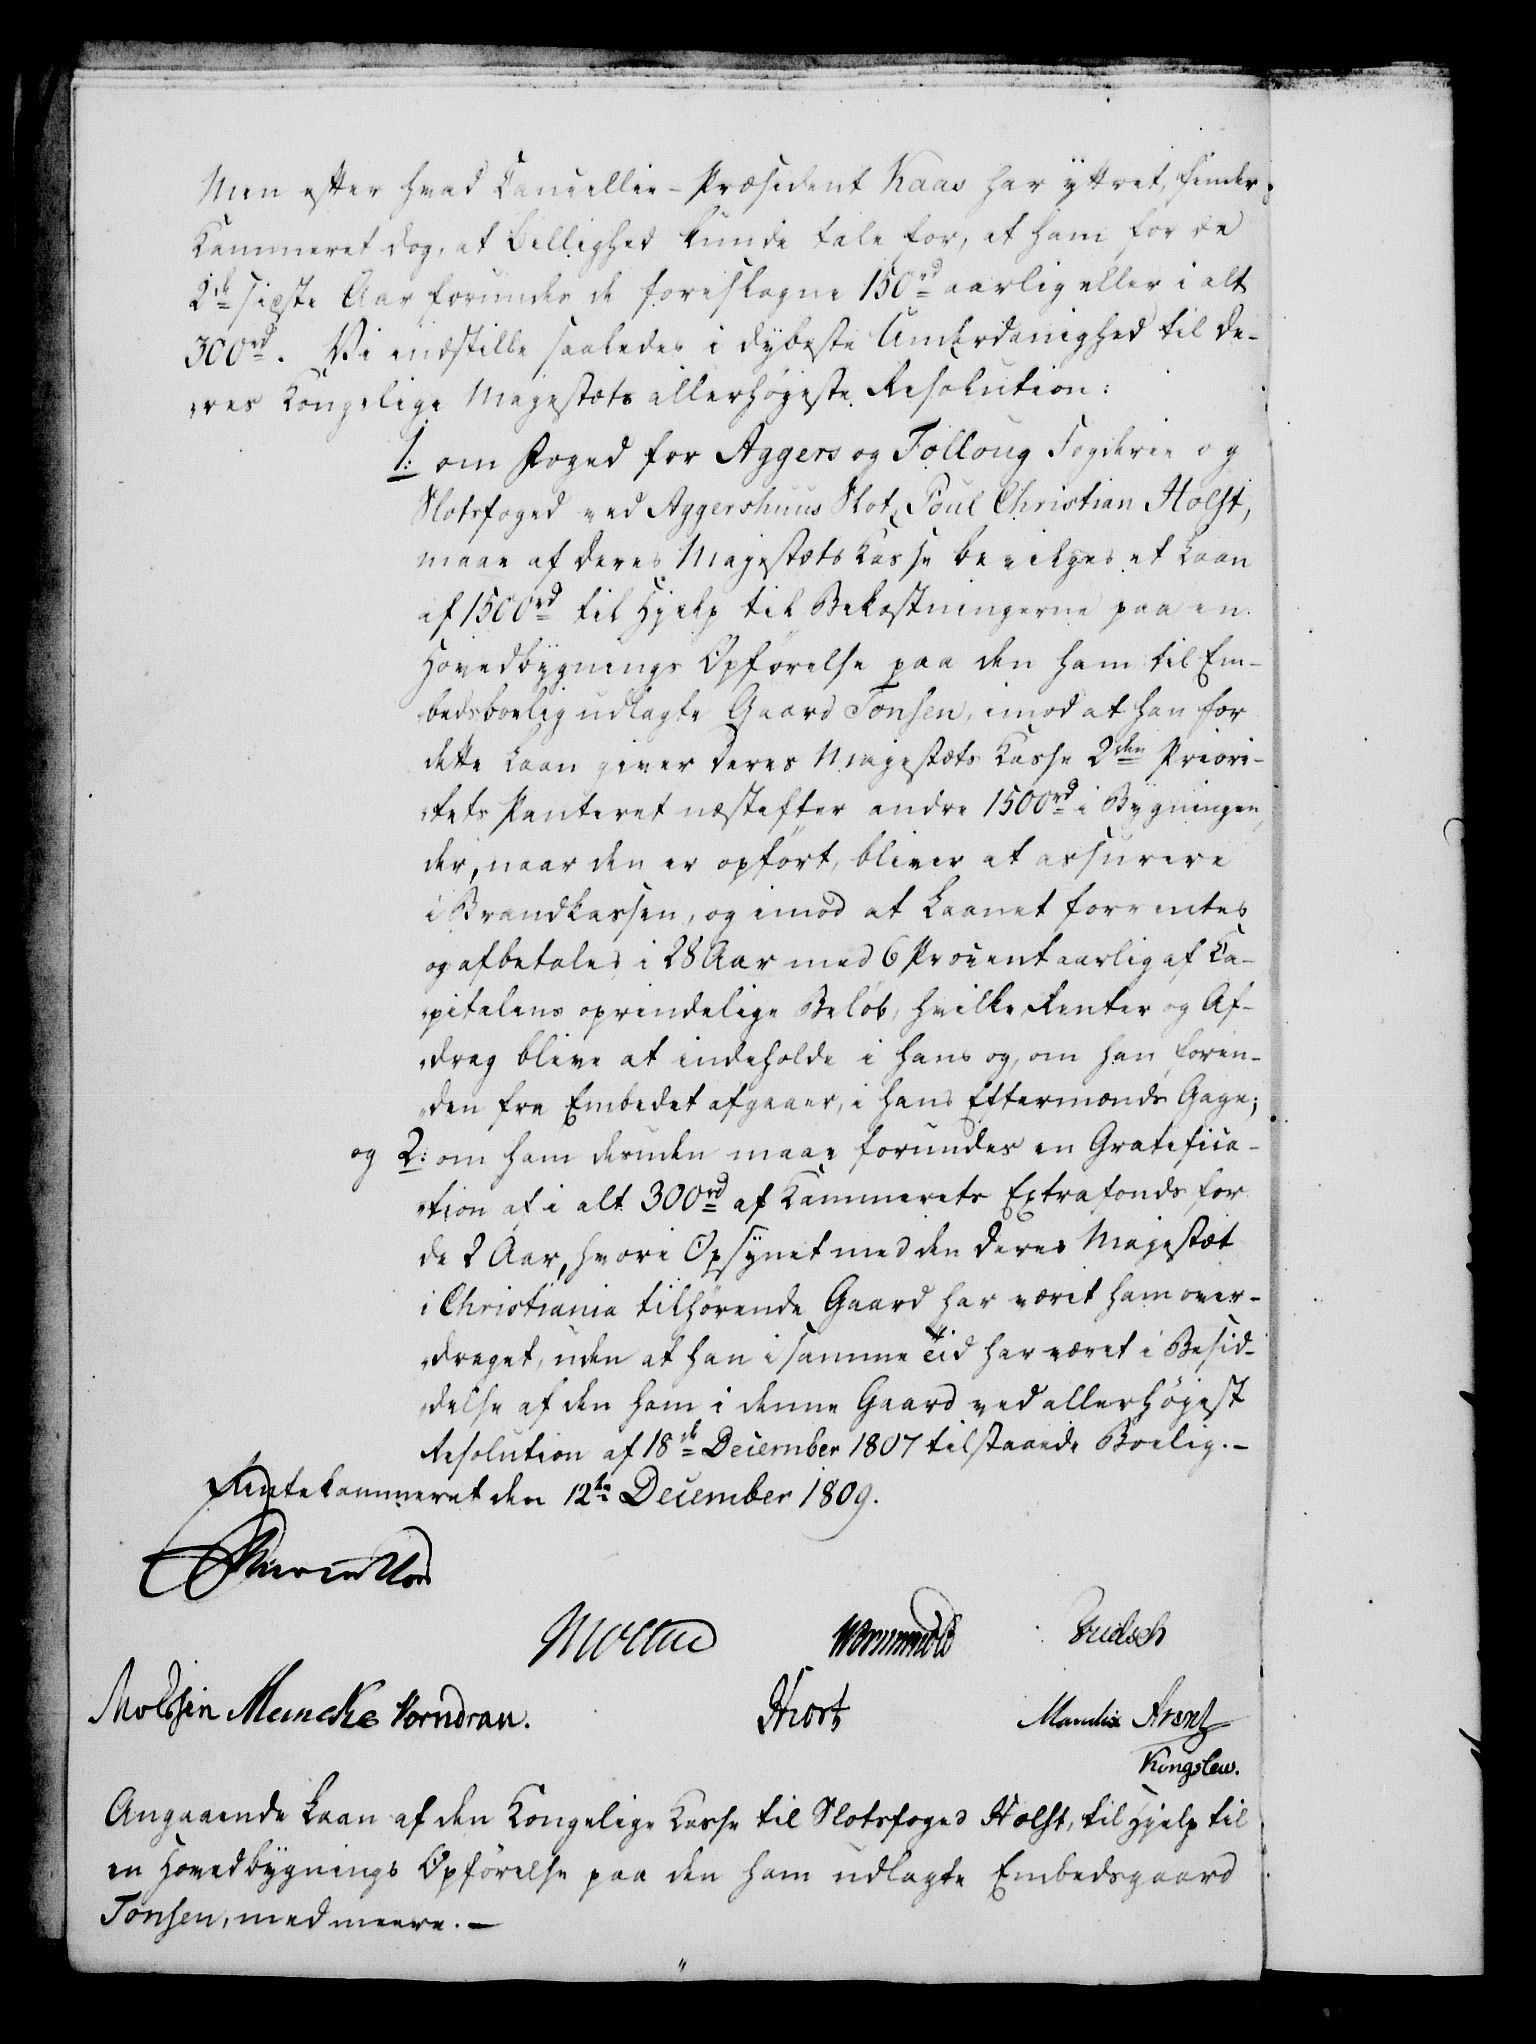 Men efter hvad Cancellie-Præsident Kaas har ÿttret, finder
Kammeret dog, at Billighed kunde tale for, at ham for de
2de sidste Aar forundes de foreslagne 150rd aarlig eller i alt
300rd. Vi indstille saaledes i dÿbeste Underdanighed til De-
res Kongelige Majestæts allerhøjeste Resolution:
1: om Foged for Aggers og Folloug Fogderie og
Slotsfoged ved Aggershuus Slot, Poul Christian Holst,
maae af Deres Majestæts Kasse bevilges et Laan
af 1500rd til Hjelp til Bekostningerne paa en
Hovedbÿgnings Opførelse paa den ham til Em-
bedsboelig udlagte Gaard Tonsen, imod at han for
dette Laan giver Deres Majestæts Kasse 2den Priori-
tets Panteret næstefter andre 1500rd i Bÿgningen,
der, naar den er opført, bliver at assurere
i Brandkassen, og imod at Laanet forrentes
og afbetales i 28 Aar med 6 Procent aarlig af Ca-
pitalens oprindelige Beløb, hvilke Renter og Af-
drag blive at indeholde i hans og, om han, foren-
den fra Embedet afgaaer, i hans Eftermands Gage;
og 2: om ham desuden maae forundes en Gratifica-
tion af i alt 300rd af Kammerets Extrafonds for
de 2 Aar, hvori Opsÿnet med den Deres Majestæt
i Christiania tilhørende Gaard har været ham over-
draget, uden at han i samme Tid har været i Besid-
delse af den ham i denne Gaard ved allerhøjest
Resolution af 18de December 1807 tilstaaede Boelig.-
Rentekammeret den 12te December 1809.
Moltke Wormskiold
Meincke Korndran.
Hiort
Mandix Arentz
Kongslew.
Angaaende Laan af den Kongelige Kasse til Slotsfoged Holst, til Hjelp til
en Hovedbÿgnings Opførelse paa den ham udlagte Embedsgaard
Tonsen, med meere.-